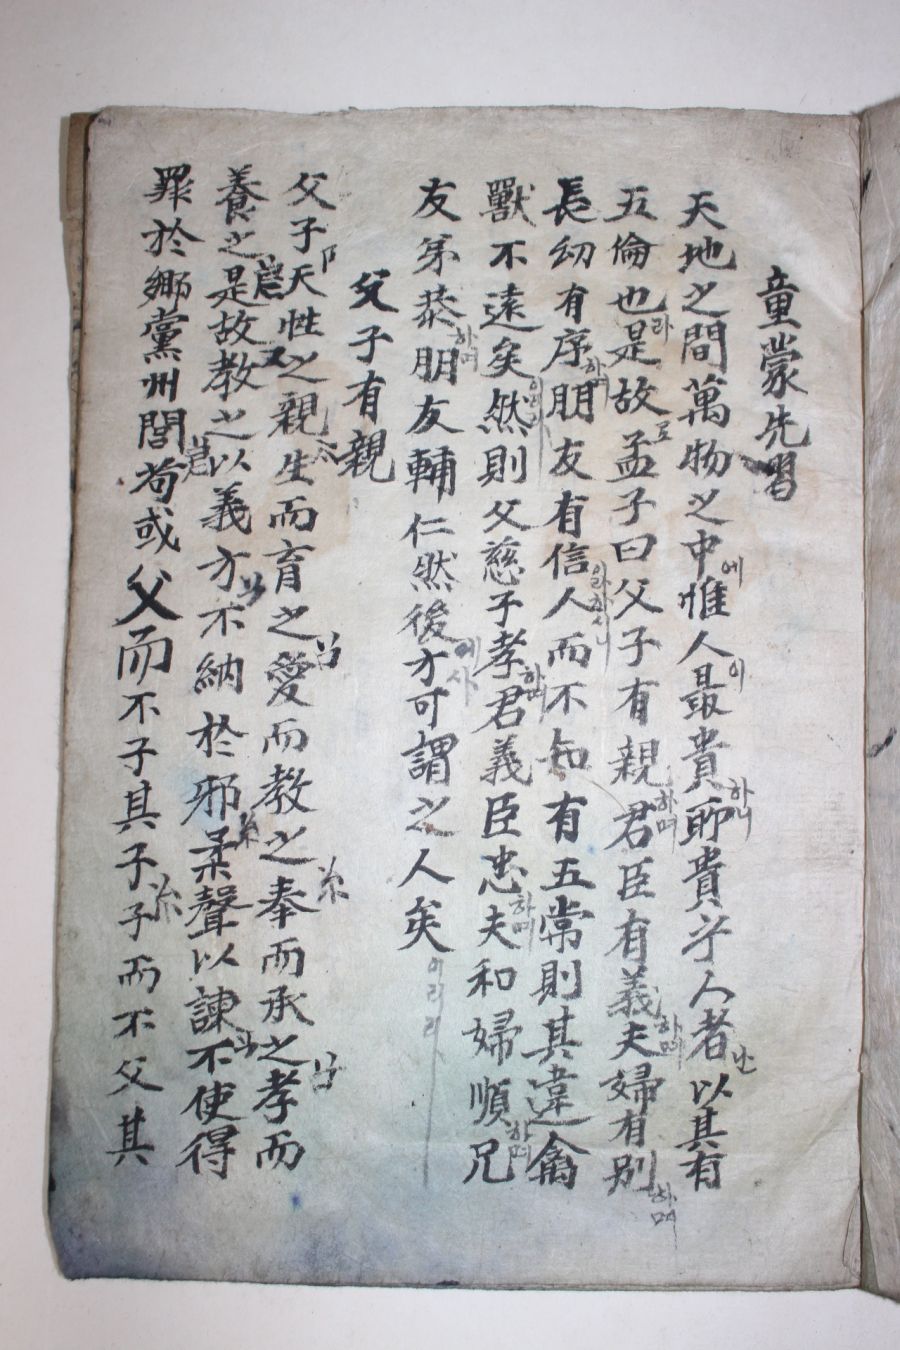 童蒙先習
天地之間萬物之中에惟人이最貴하니所貴乎人者난以其有
五倫也라是故로孟子曰父子有親하며君臣有義하며夫婦有別하며
長幼有序하며朋友有信이라하시니人而不知有五常則其違禽
獸不遠矣이리라然則父慈子孝하며君義臣忠하며夫和婦順하며兄
友弟恭하며朋友輔仁然後에사方可謂之人矣이리라
父子有親
父子卩天性之親生而育之愛而教之奉而承之孝而
養之是故教之以義方不納於邪柔聲以諫不使得
罪於鄉黨州閭苟或父而不子其子子而不父其